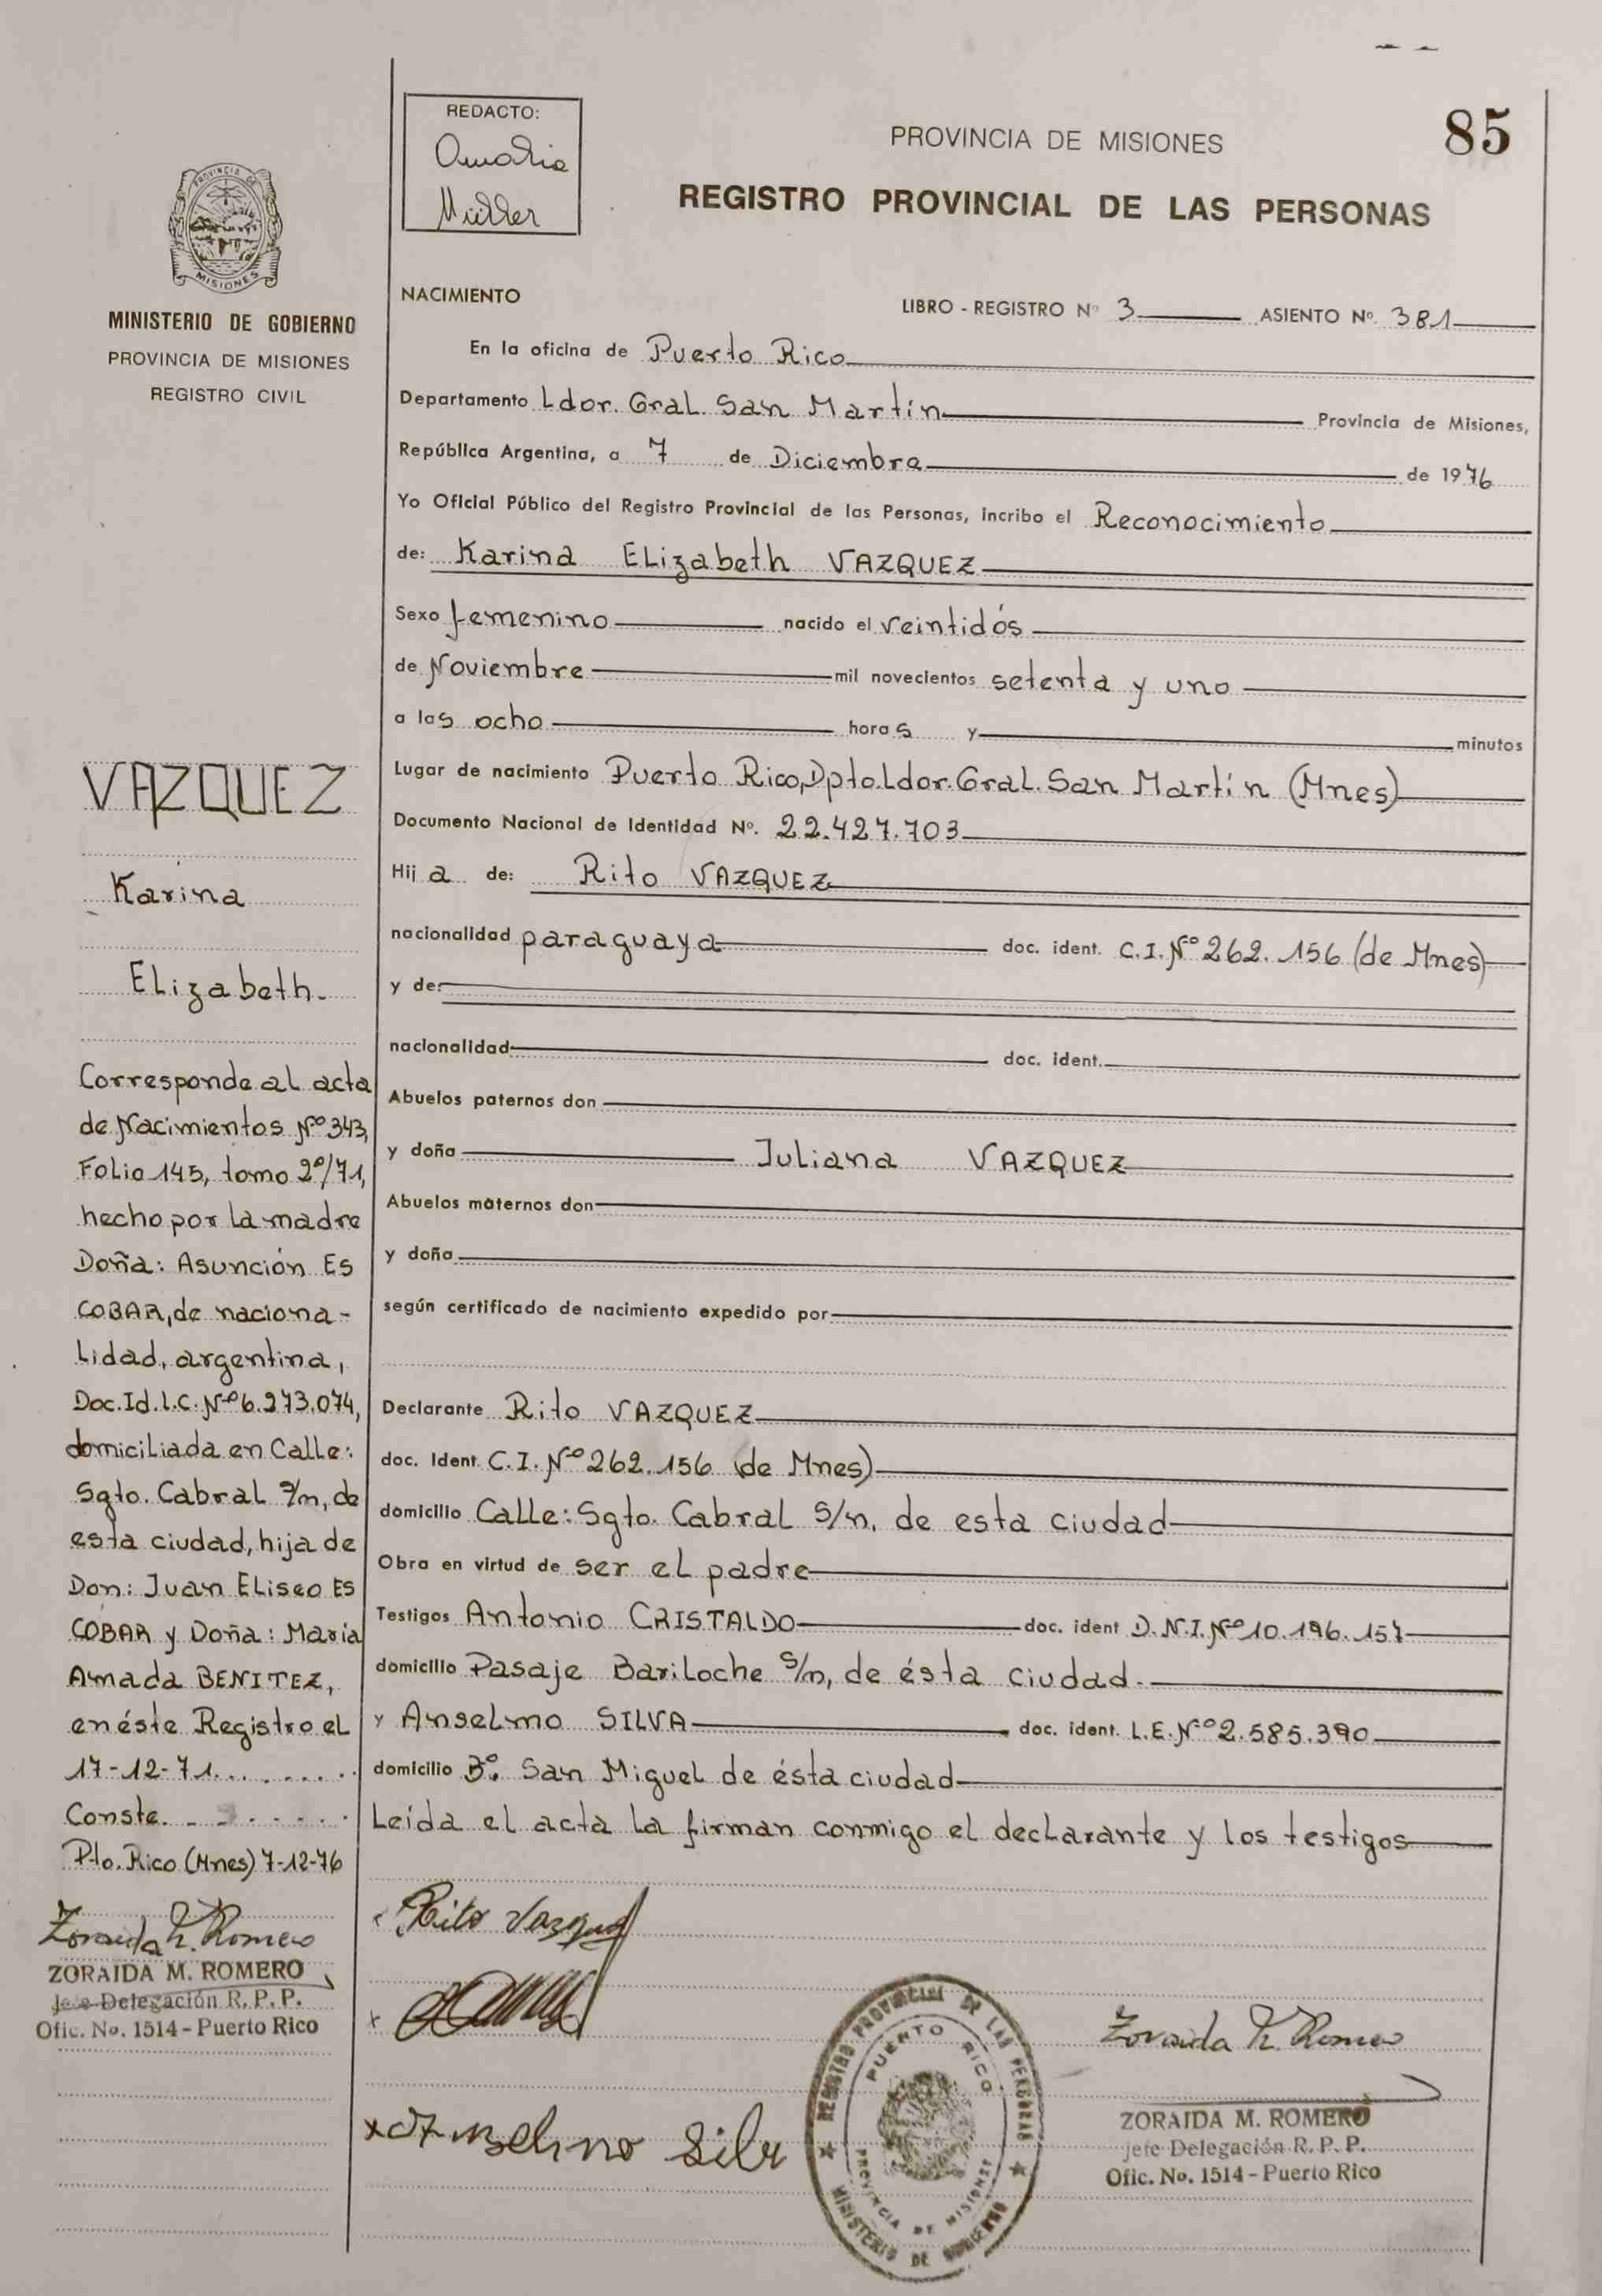 85
REDACTO:
Amalia
Müller
PROVINCIA DE MISIONES
REGISTRO PROVINCIAL DE LAS PERSONAS
PROVINCIA DE
MISIONES
MINISTERIO DE GOBIERNO
PROVINCIA DE MISIONES
REGISTRO CIVIL
NACIMIENTO
LIBRO - REGISTRO Nº 3 ASIENTO Nº. 381
En la oficina de Puerto Rico
Departamento Ldor. Gral. San Martín Provincia de Misiones,
República Argentina, a 7 de Diciembre de 1976
Yo Oficial Público del Registro Provincial de las Personas, incribo el Reconocimiento
de: Karina Elizabeth VAZQUEZ
Sexo femenino nacido el veintidós
de Noviembre mil novecientos setenta y uno
a las ocho horas y minutos
Lugar de nacimiento Puerto Rico, Dpto. Ldor. Gral. San Martín (Mnes)
Documento Nacional de Identidad Nº. 22.427.703
Hija de: Rito VAZQUEZ
nacionalidad paraguaya doc. ident. C.I. Nº 262.156 (de Mnes)
y de:
nacionalidad doc. ident.
Abuelos paternos don
y doña Juliana VAZQUEZ
Abuelos maternos don
y doña
según certificado de nacimiento expedido por
Declarante Rito VAZQUEZ
doc. Ident. C.I. Nº 262.156 (de Mnes)
domicilio Calle: Sgto. Cabral S/n, de esta ciudad
Obra en virtud de ser el padre
Testigos Antonio CRISTALDO doc. ident D.N.I. Nº 10.196.157
domicilio Pasaje Bariloche S/n, de ésta ciudad.
y Anselmo SILVA doc. ident. L.E. Nº 2.585.390
domicilio Bº. San Miguel de ésta ciudad
Leída el acta la firman conmigo el declarante y los testigos
VAZQUEZ
Karina
Elizabeth.
Corresponde al acta
de Nacimientos Nº 343,
Folio 145, tomo 2º/71,
hecho por la madre
Doña: Asunción ES
COBAR, de naciona-
lidad, argentina,
Doc. Id. L.C. Nº 6.273.074,
domiciliada en Calle:
Sgto. Cabral S/n, de
esta ciudad, hija de
Don: Juan Eliseo ES
COBAR y Doña: María
Amada BENITEZ,
en éste Registro el
17-12-71.........
Conste. - - . . . . .
Pto. Rico (Mnes) 7-12-76
Zoraida M. Romero
ZORAIDA M. ROMERO
Jefe Delegación R. P. P.
Ofic. No. 1514 - Puerto Rico
Rito Vazquez
x
x Anselmo Silv
REGISTRO PROVINCIAL DE LAS PERSONAS
PUERTO RICO
PROVINCIA DE MISIONES
MINISTERIO DE GOBIERNO
Zoraida M. Romero
ZORAIDA M. ROMERO
Jefe Delegación R. P. P.
Ofic. No. 1514 - Puerto Rico